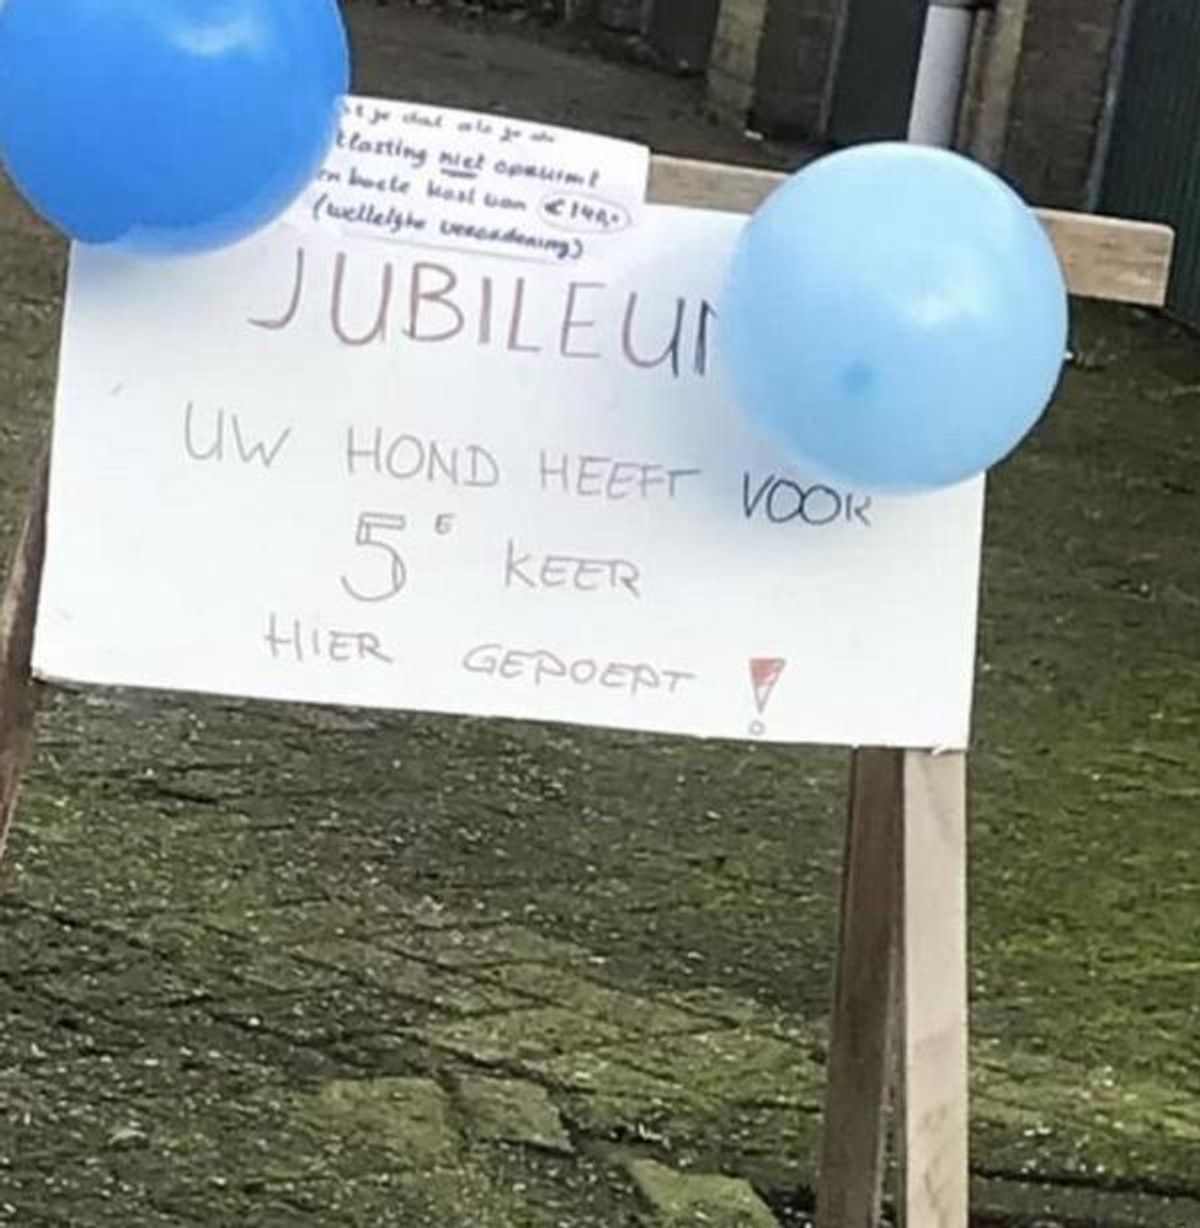 je dat als je de
tlasting niet opruimt
en boete kost van €140,-
(wettelijke verordening)
JUBILEUM
UW HOND HEEFT VOOR
5E KEER
HIER GEPOEPT!